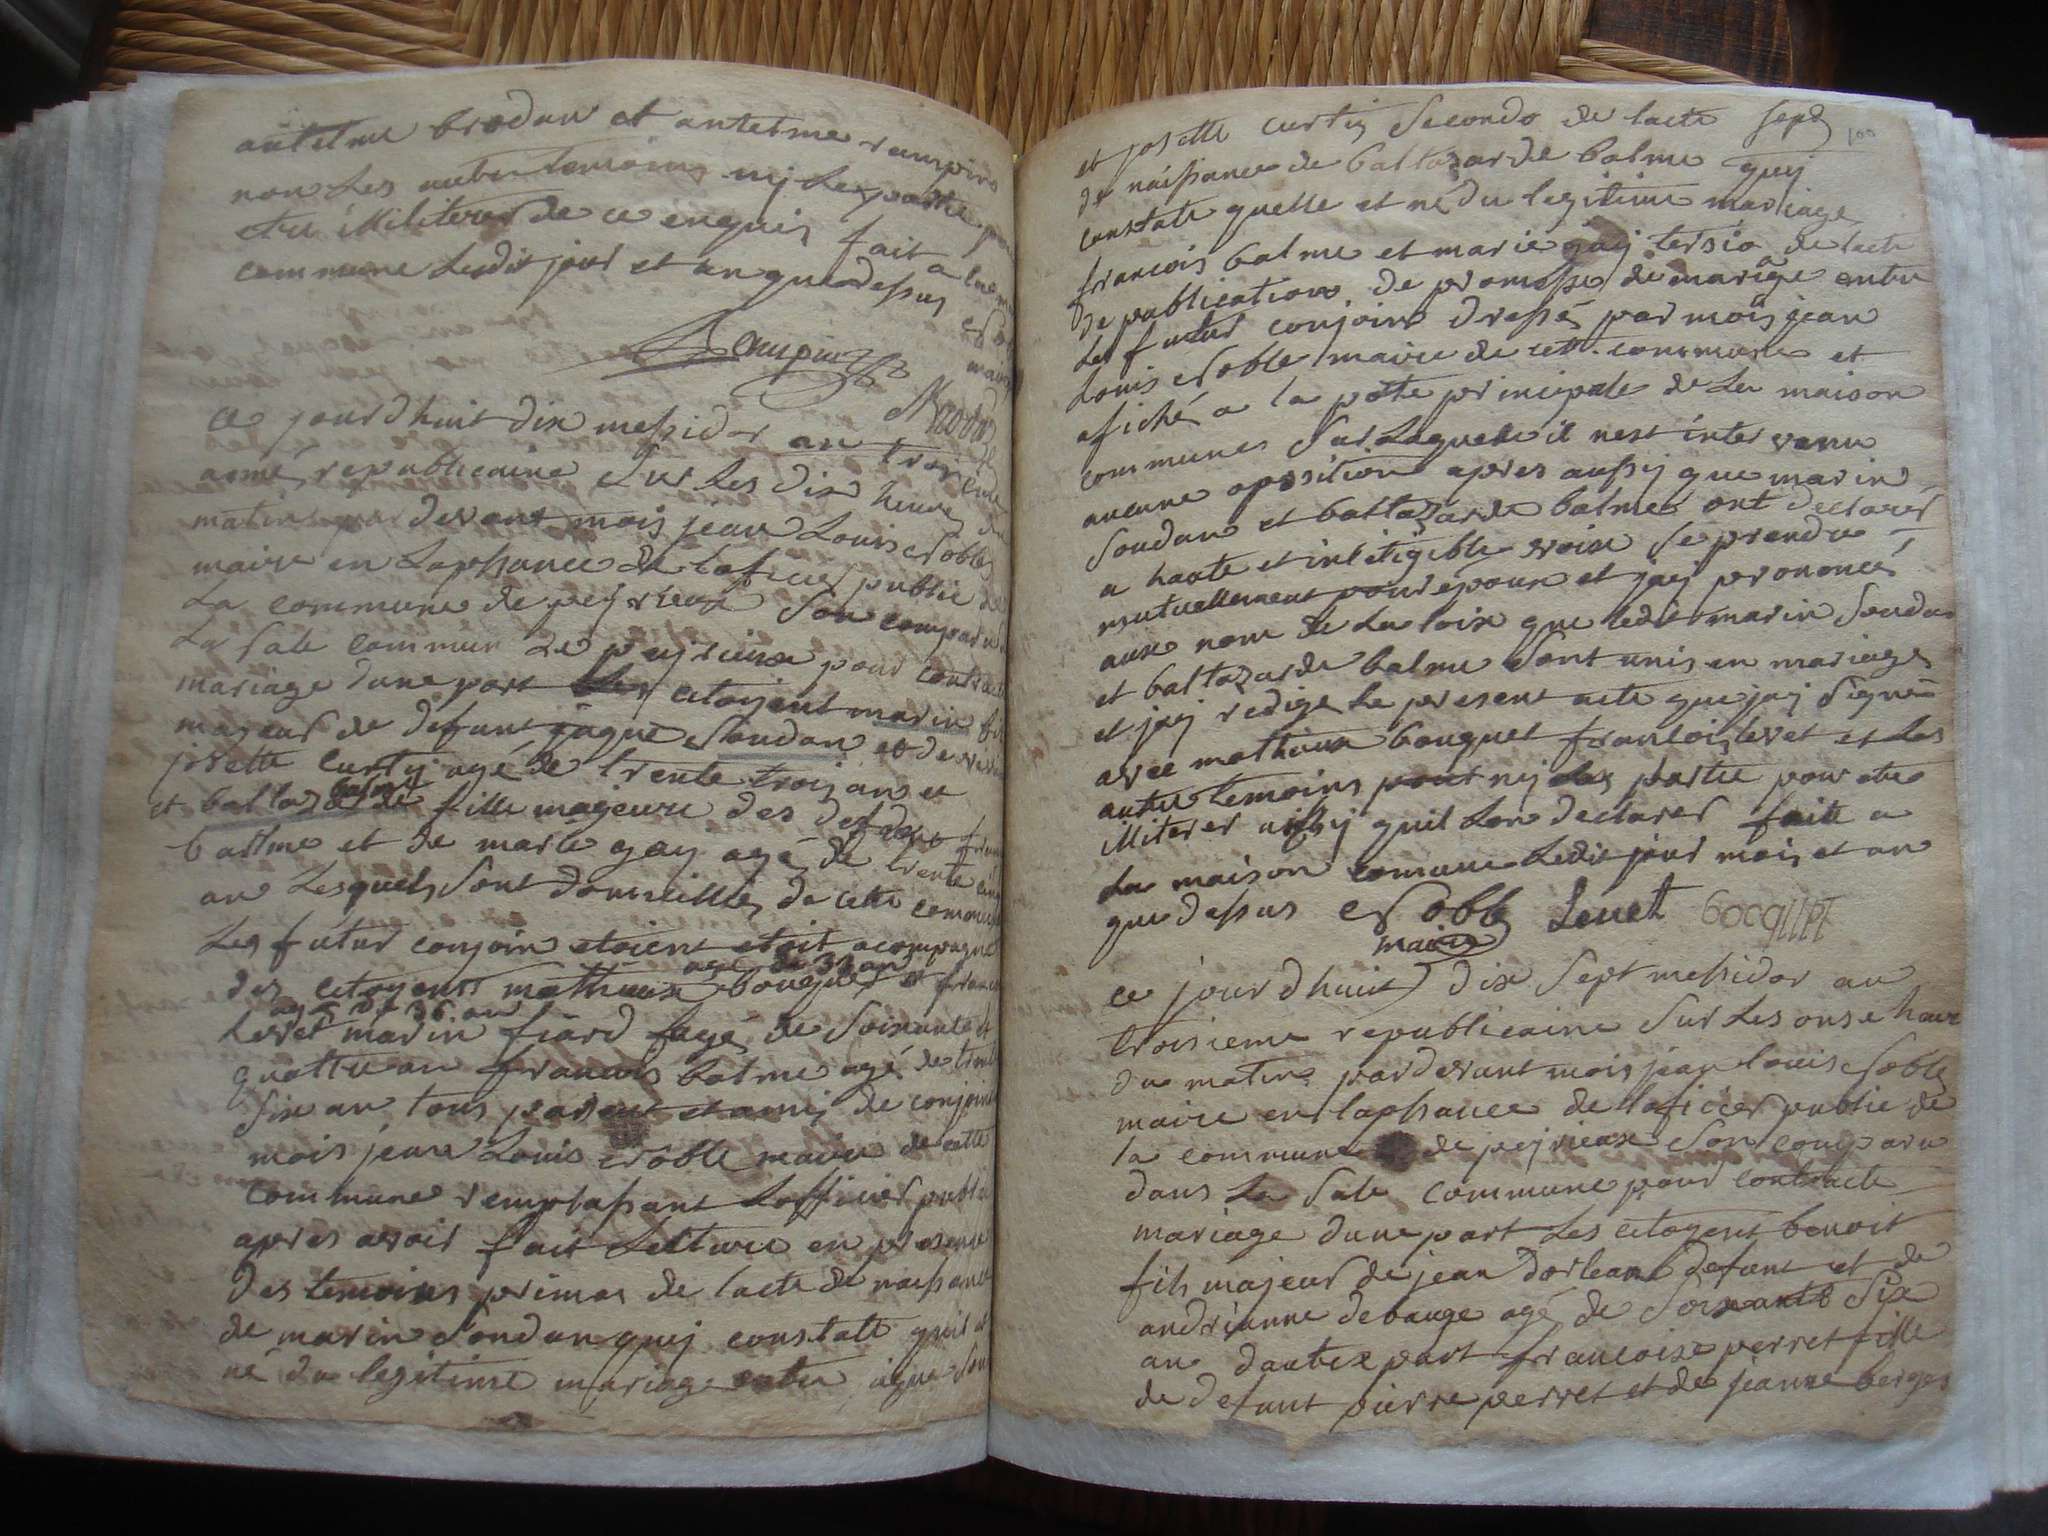 antelme brodan et anterme
non Les autre temoins nij Les partie pour
etre illiterer de ce enquis fait a la
commune Ledit jour et an que dessus
ce jourdhuit dix messidor an trois
anné republicaine Sur Les dix heures du
matin par devant mois jean Louis Noble
maire en Lapssance de laficier public de
La commune de peyrieux Son comparu
La Sale commun de peyrieux pour contracté
mariage dune part Les citoyent marin
majeur de defunt jaque Soudan et de
josette Curtij agé de trente trois an et
balme
et baltazarde fille majeure des defunt
balme et de marie gay agé de trente cinq
an Lesquels Sont domicilies de cette commune
Les futur conjoin etoient etoit acompagné
age de 33 an
des citoyens mathieux bouquet et francois
age de 36 an
Levet marin fiard fagé de Soixante
quattre an francois balme agé de trente
six an tous parent et amij de conjoint
mois jean Louis Noble maire de cette
commune remplassant Lofficier public
apres avoir fait Lecture en presence
des temoins primas de lacte de naissance
de marin Soudan quij constate quil et
né du legitime mariage entre jaque Sou
et josette curtij Secondo de lacte 100
de naissance de baltazarde balme quij
constate quelle et né du legitime mariage
francois balme et marie gaij tersio de lacte
de publication de promesse de mariage entre
Les futur conjoins dressé par mois jean
Louis Noble maire de cette commune et
afiché a la porte principale de La maison
communes Sur Laquelle il nest intervenu
aucune oposition apres aussij que marin
Soudan et baltazarde balme ont declarer
a haute et inteligible voix Se prendre
mutuellement pour epoux et jaij prononcé
aux nom de La loix que ledit marin Soudan
et baltazarde balme Sont unis en mariage
et jaij redige Le present acte que jaij Signé
avec mathieux bouquet francois levet et Les
autre temoins pour nij Les partie pour etre
illiterer ainssij quil Lon declarer faite a
La maison comune Ledit jour mois et an
que dessus Noble Levet bocquet
maire
ce jourdhuit dix Sept messidor an
troisieme republicaine Sur Les onse heure
du matin pardevant mois jean louis Noble
maire en lapssance de laficier public de
la commune de peyrieux Son comparu
dans La Sale commune pour contracte
mariage dune part Les citoyent benoit
fils majeur de jean dorleant defunt et de
andrianne debauge agé de Soixante Six
an dautre part francoise perret fille
de defunt pierre perret et de jeanne berger